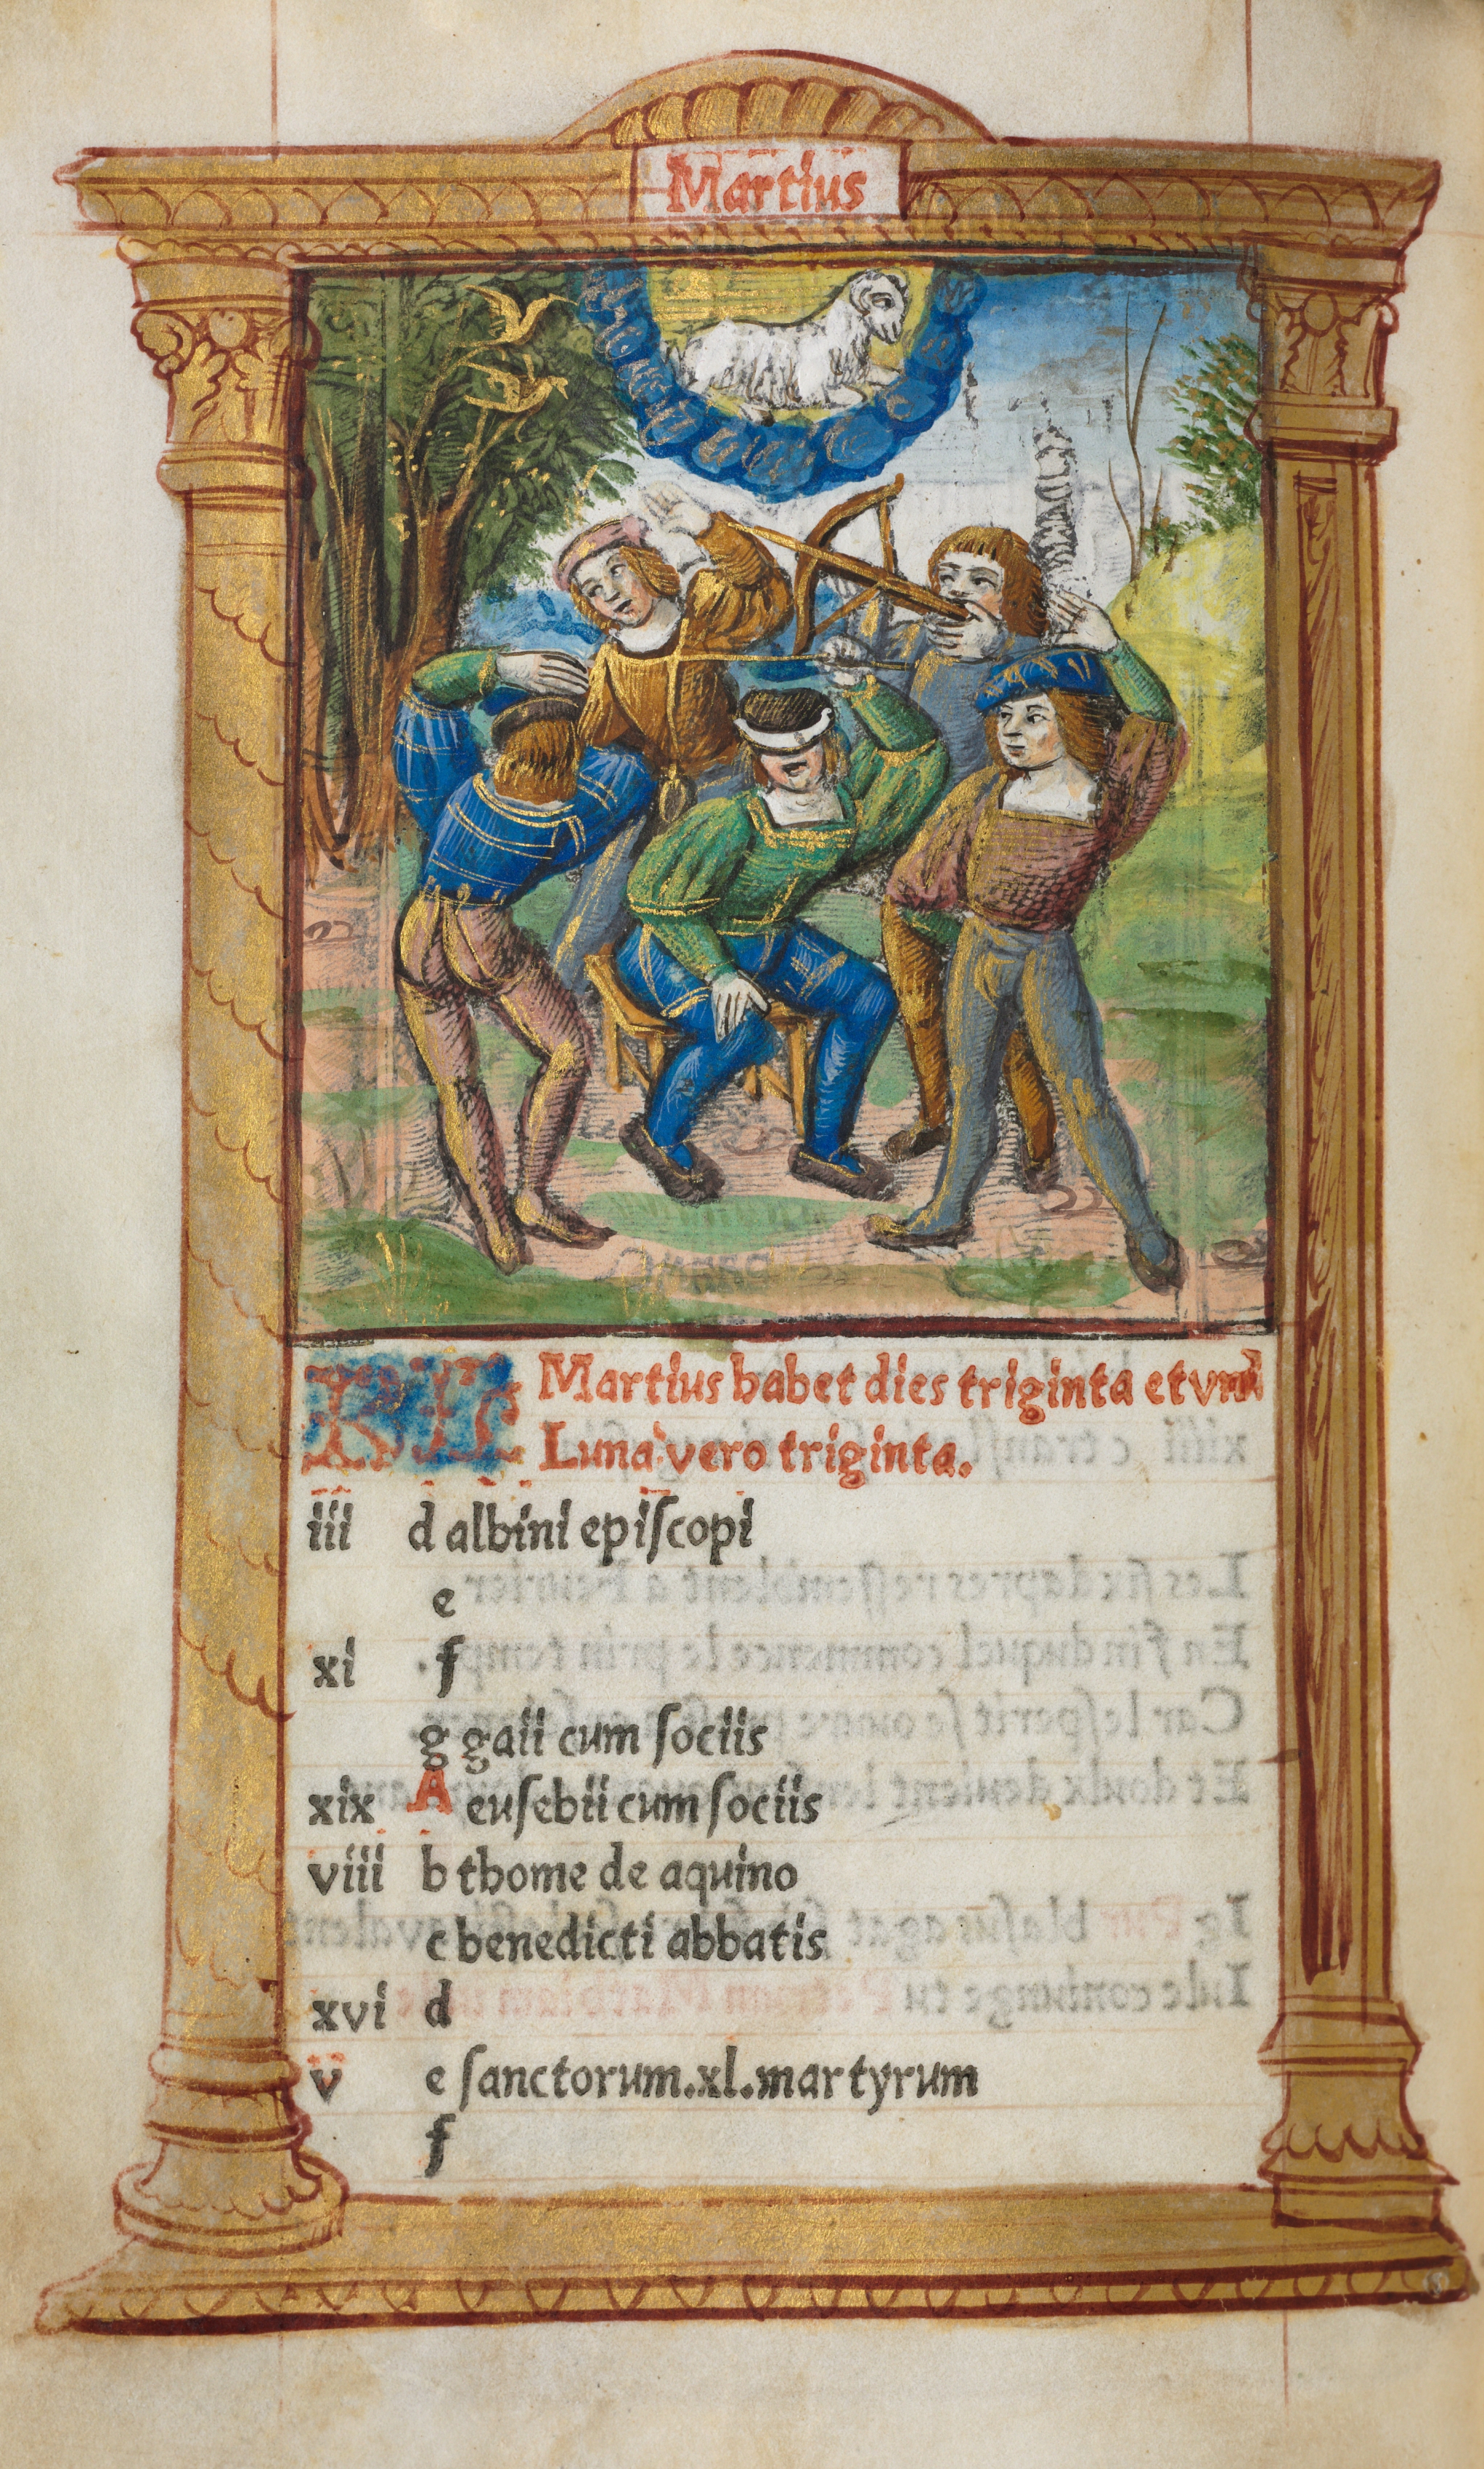 Martius
KL Martius habet dies triginta et vnū
Luna vero triginta.
iii d albini epiſcopi
e
xi f
g gaii cum ſociis
xix A euſebii cum ſociis
viii b thome de aquino
c benedicti abbatis
xvi d
v e ſanctorum.xl.martyrum
f